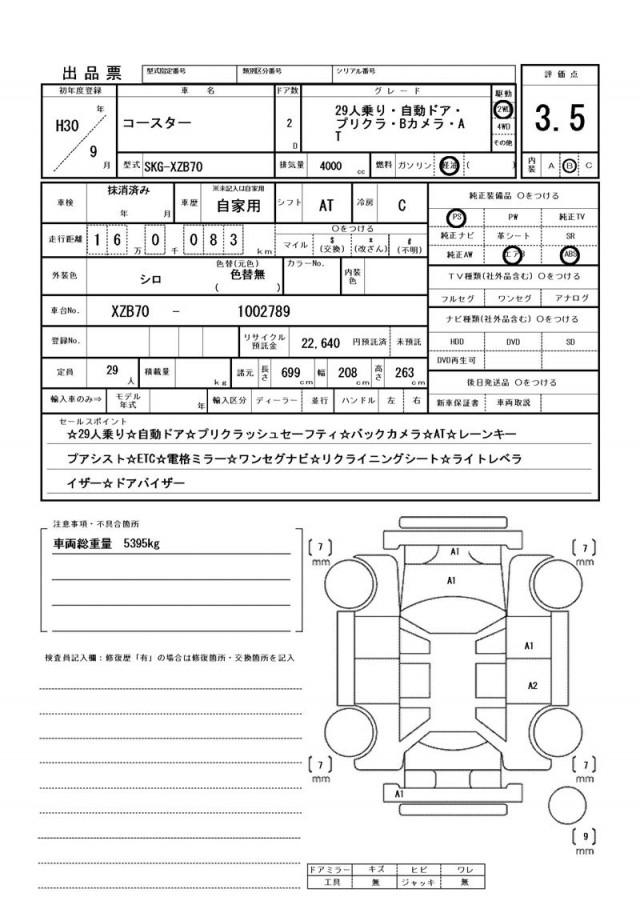 出品票 型式指定番号 類別区分番号 シリアル番号 評価点
初年度登録 車名 ドア数 グレード 駆動
H30 年 9 月 コースター 2 D 29人乗り・自動ドア・ 2WD 3.5
プリクラ・Bカメラ・A 4WD
T その他
型式 SKG-XZB70 排気量 4000 cc 燃料 ガソリン 軽油 ( ) 内装 A B C
車検 抹消済み 年 月 車歴 ※未記入は自家用 自家用 シフト AT 冷房 C 純正装備品 〇をつける
PS PW 純正TV
走行距離 16 万 0 千 083 km 〇をつける マイル $ (交換) * (改ざん) # (不明) 純正ナビ 革シート SR
純正AW エアB ABS
外装色 シロ 色替(元色) 色替無 ( ) カラーNo. 内装色 TV種類(社外品含む) 〇をつける
フルセグ ワンセグ アナログ
車台No. XZB70 - 1002789 ナビ種類(社外品含む) 〇をつける
登録No. リサイクル預託金 22,640 円預託済 未預託 HDD DVD SD
DVD再生可
定員 29 人 積載量 kg 諸元 長さ 699 cm 幅 208 cm 高さ 263 cm 後日発送品 〇をつける
輸入車のみ⇒ モデル年式 年 輸入区分 ディーラー 並行 ハンドル 左 右 新車保証書 車両取説
セールスポイント
☆29人乗り☆自動ドア☆プリクラッシュセーフティ☆バックカメラ☆AT☆レーンキー
プアシスト☆ETC☆電格ミラー☆ワンセグナビ☆リクライニングシート☆ライトレベラ
イザー☆ドアバイザー
注意事項・不具合箇所
車両総重量 5395kg
検査員記入欄：修復歴「有」の場合は修復箇所・交換箇所を記入
[7] mm A1 [7] mm
A1
A1
A2
[7] mm [7] mm
A1
[9] mm
ドアミラー キズ ヒビ ワレ
工具 無 ジャッキ 無